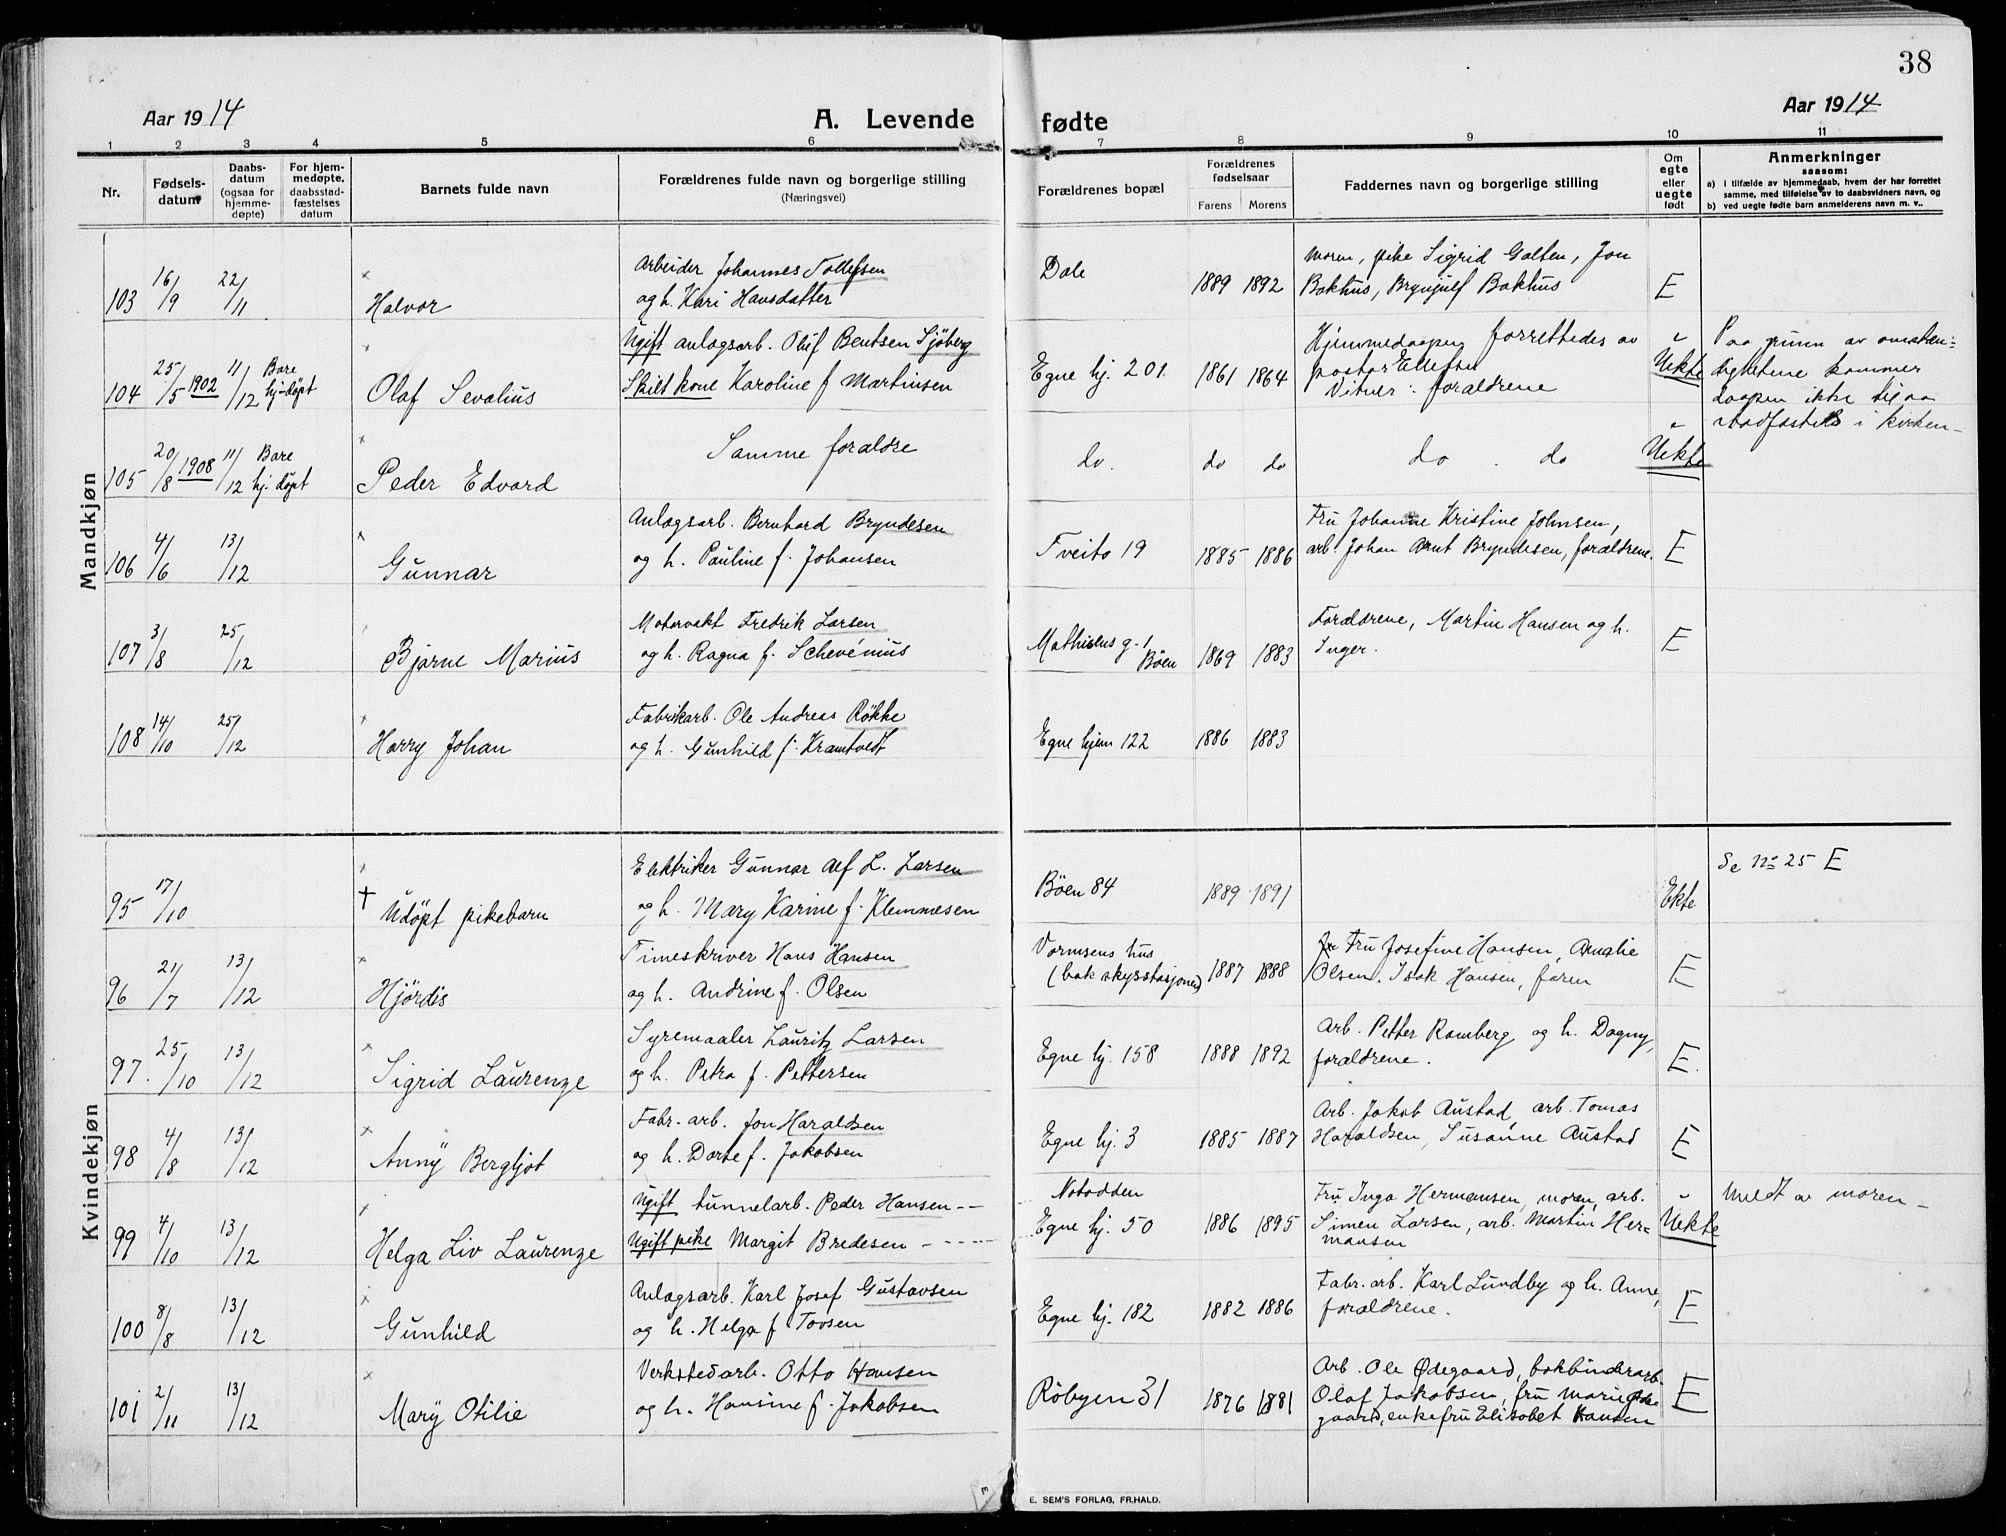 38
Aar 1914
A. Levende
fødte
Aar 1914
1 2 3 4 5 6 7 8 9 10 11
Nr.
Fødsels-
datum
Daabs-
datum
(ogsaa for
hjemme-
døpte)
For hjem-
medøpte,
daabsstad-
fæstelses
datum
Barnets fulde navn
Forældrenes fulde navn og borgerlige stilling
(Næringsvei)
Forældrenes bopæl
Forældrenes
fødselsaar
Farens Morens
Faddernes navn og borgerlige stilling
Om
egte
eller
uegte
født
Anmerkninger
saasom:
a) i tilfælde av hjemmedaab, hvem der har forrettet
samme, med tilføielse av to daabsvidners navn, og
b) ved uegte fødte barn anmelderens navn m. v..
Mandkjøn
103 16/9 22/11 Halvor
Arbeider Johannes Tollefsen
og h. Kari Hansdatter
Dale 1889 1892
Moren, pike Sigrid Galten, Jon
Bakhus, Brynjulf Bakhus
E
104 25/5 1902 11/12 Bare
hj-døpt
Olaf Sevalius
Ugift anlagsarb. Oluf Bentsen Sjöberg
Skilt kone Karoline f Martinsen
Egne hj. 201. 1861 1864
Hjemmedaapen forrettedes av
pastor Ellefsen
Vitner: forældrene
Uekte
Paa grunn av omsten-
dighetene kommer
daapen ikke til aa
stadfæstes i kirken-
105 20/8 1908 11/12 Bare
hj. døpt
Peder Edvard
Samme forældre
do. do do do. do Uekte
106 4/6 13/12 Gunnar
Anlagsarb. Bernhard Bryndesen
og h. Pauline f. Johansen
Tveito 19 1885 1886
Fru Johanne Kristine Johnsen,
arb. Johan Arnt Bryndesen, forældrene.
E
107 3/8 25/12 Bjarne Marius
Motorvakt Fredrik Larsen
og h. Ragna f. Schevénius
Mathisens g. 1
Bøen 1869 1883
Forældrene, Martin Hansen og h.
Inger.
E
108 14/10 25/12 Harry Johan
Fabrikarb. Ole Andreas Røkke
og h. Gunhild f. Kramtvedt
Egne hjem 122 1886 1883
Kvindekjøn
95 17/10 † Udöpt pikebarn
Elektriker Gunnar Alf L. Larsen
og h. Mary Karine f. Klemmesen
Böen 84 1889 1891
Ekte
Se No 25 E
96 21/7 13/12 Hjördis
Timeskriver Hans Hansen
og h. Andrine f. Olsen
Vormsens hus
(bak skysstasjonen) 1887 1888
Fru Josefine Hansen, Amalie
Olsen. Isak Hansen, faren
E
97. 25/10 13/12 Sigrid Laurenze
Syremaaler Lauritz Larsen
og h. Petra f. Pettersen
Egne hj. 158 1888 1892
Arb. Petter Ramberg og h. Dagny,
forældrene.
E.
98 4/8 13/12 Anny Bergljot
Fabr.-arb. Jon Haraldsen
og h. Dorte f. Jakobsen
Egne hj. 3 1885 1887
Arb. Jakob Austad, arb. Tomas
Haraldsen, Susanne Austad
E
99 4/10 13/12 Helga Liv Laurenze
Ugift tunnelarb. Peder Hansen--
Ugift pike Margit Bredesen -----
Notodden
Egne hj. 50 1886 1895
Fru Inga Hermansen, moren, arb.
Simen Larsen, arb. Martin Her-
mansen
Uekte
Meldt av moren-
100 8/8 13/12 Gunhild
Anlagsarb. Karl Josef Gustavsen
og h. Helga f Tovsen
Egne hj. 182 1882 1886
Fabr. arb. Karl Lundby og h. Anne,
forældrene.
E
101 2/11 13/12 Mary Otilie
Verkstedarb. Otto Hansen
og h. Hansine f. Jakobsen
Röbyen 31 1876 1881
Arb. Ole Ødegaard, bokbinderarb.
Olaf Jakobsen, fru Marie Øde
gaard, enkefru Elisabet Hansen
E
E. SEM'S FORLAG, FR.HALD.